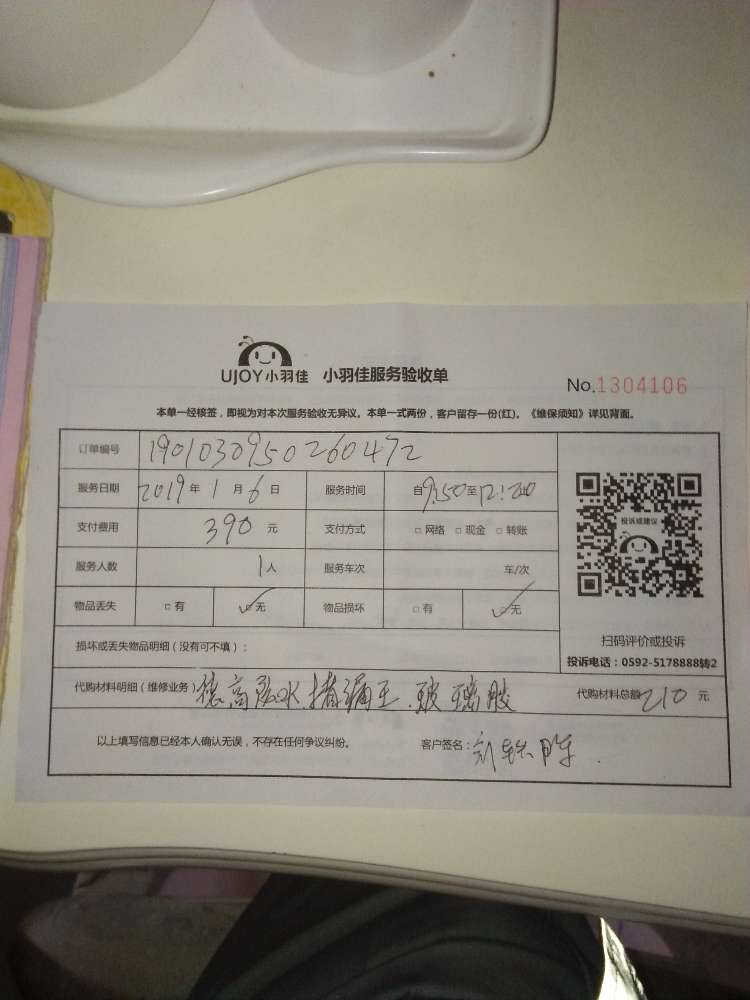 UJOY小羽佳 小羽佳服务验收单
No.1304106
本单一经核签，即视为对本次服务验收无异议。本单一式两份，客户留存一份(红)。《维保须知》详见背面。
订单编号 1901030950260472
服务日期 2019年1月6日 服务时间 自9:50至12:
支付费用 390元 支付方式 □网络 □现金 □转账
投诉或建议
服务人数 1人 服务车次 车/次
物品丢失 □有 ☑无 物品损坏 □有 ☑无
扫码评价或投诉
损坏或丢失物品明细（没有可不填）：
投诉电话：0592-5178888转2
代购材料明细（维修业务） 德高 堵漏王、玻璃胶 代购材料总额210元
以上填写信息已经本人确认无误，不存在任何争议纠纷。 客户签名：